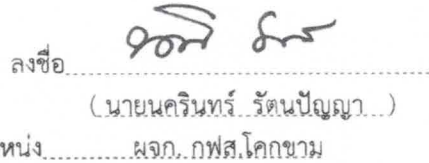 ลงชื่อ
(นายนครินทร์ รัตนปัญญา)
หน่ง ผจก. กฟส.โคกขาม